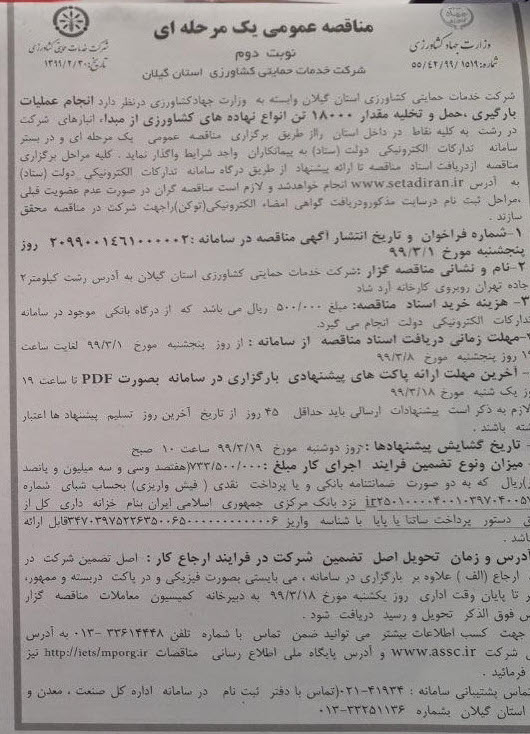 مناقصه عمومی یک مرحله ای
نوبت دوم
شرکت خدمات حمایتی کشاورزی استان گیلان
وزارت جهاد کشاورزی
شماره: ۵۵/۴۲/۹۹/۱۵۱۹
شرکت خدمات حمایتی کشاورزی
تاریخ: ۱۳۹۹/۲/۳۰
شرکت خدمات حمایتی کشاورزی استان گیلان وابسته به وزارت جهادکشاورزی درنظر دارد انجام عملیات
بارگیری، حمل و تخلیه مقدار ۱۸۰۰۰ تن انواع نهاده های کشاورزی از مبداء انبارهای شرکت
در رشت به کلیه نقاط در داخل استان رااز طریق برگزاری مناقصه عمومی یک مرحله ای و در بستر
سامانه تدارکات الکترونیکی دولت (ستاد) به پیمانکاران واجد شرایط واگذار نماید . کلیه مراحل برگزاری
مناقصه ازدریافت اسناد مناقصه تا ارائه پیشنهاد از طریق درگاه سامانه تدارکات الکترونیکی دولت (ستاد)
به آدرس www.setadiran.ir انجام خواهدشد و لازم است مناقصه گران در صورت عدم عضویت قبلی
،مراحل ثبت نام درسایت مذکورودریافت گواهی امضاء الکترونیکی(توکن)راجهت شرکت در مناقصه محقق
سازند .
۱-شماره فراخوان و تاریخ انتشار آگهی مناقصه در سامانه :۲۰۹۹۰۰۱۴۶۱۰۰۰۰۰۲ روز
پنجشنبه مورخ ۹۹/۳/۱
۲-نام و نشانی مناقصه گزار :شرکت خدمات حمایتی کشاورزی استان گیلان به آدرس رشت کیلومتر۲
جاده تهران روبروی کارخانه آرد شاد
۳- هزینه خرید اسناد مناقصه: مبلغ ۵۰۰/۰۰۰ ریال می باشد که از درگاه بانکی موجود در سامانه
تدارکات الکترونیکی دولت انجام می گیرد.
-مهلت زمانی دریافت اسناد مناقصه از سامانه : از روز پنجشنبه مورخ ۹۹/۳/۱ لغایت ساعت
روز پنجشنبه مورخ ۹۹/۳/۸
- آخرین مهلت ارائه پاکت های پیشنهادی بارگزاری در سامانه بصورت PDF تا ساعت ۱۹
یک شنبه مورخ ۹۹/۳/۱۸
لازم به ذکر است پیشنهادات ارسالی باید حداقل ۴۵ روز از تاریخ آخرین روز تسلیم پیشنهاد ها اعتبار
باشند .
- تاریخ گشایش پیشنهادها : روز دوشنبه مورخ ۹۹/۳/۱۹ ساعت ۱۰ صبح
میزان ونوع تضمین فرایند اجرای کار مبلغ :۷۳۳/۵۰۰/۰۰۰(هفتصد وسی و سه میلیون و پانصد
ریال) که به دو صورت ضمانتنامه بانکی و یا پرداخت نقدی ( فیش واریزی) بحساب شبای شماره
نزد بانک مرکزی جمهوری اسلامی ایران بنام خزانه داری کل از
دستور پرداخت ساتنا یا پایا با شناسه واریز قابل ارائه
باشد .
آدرس و زمان تحویل اصل تضمین شرکت در فرایند ارجاع کار : اصل تضمین شرکت در
ارجاع (الف ) علاوه بر بارگزاری در سامانه ، می بایستی بصورت فیزیکی و در پاکت دربسته و ممهور،
تا پایان وقت اداری روز یکشنبه مورخ ۹۹/۳/۱۸ به دبیرخانه کمیسیون معاملات مناقصه گزار
فوق الذکر تحویل و رسید دریافت شود .
جهت کسب اطلاعات بیشتر می توانید ضمن تماس با شماره تلفن ۳۳۶۱۴۴۴۸-۰۱۳ به آدرس
شرکت www.assc.ir و آدرس پایگاه ملی اطلاع رسانی مناقصات http://iets/mporg.ir نیز
فرمائید .
تماس پشتیبانی سامانه : ۴۱۹۳۴-۰۲۱(تماس با دفتر ثبت نام در سامانه اداره کل صنعت ، معدن و
استان گیلان بشماره ۳۳۲۵۱۱۳۶-۰۱۳